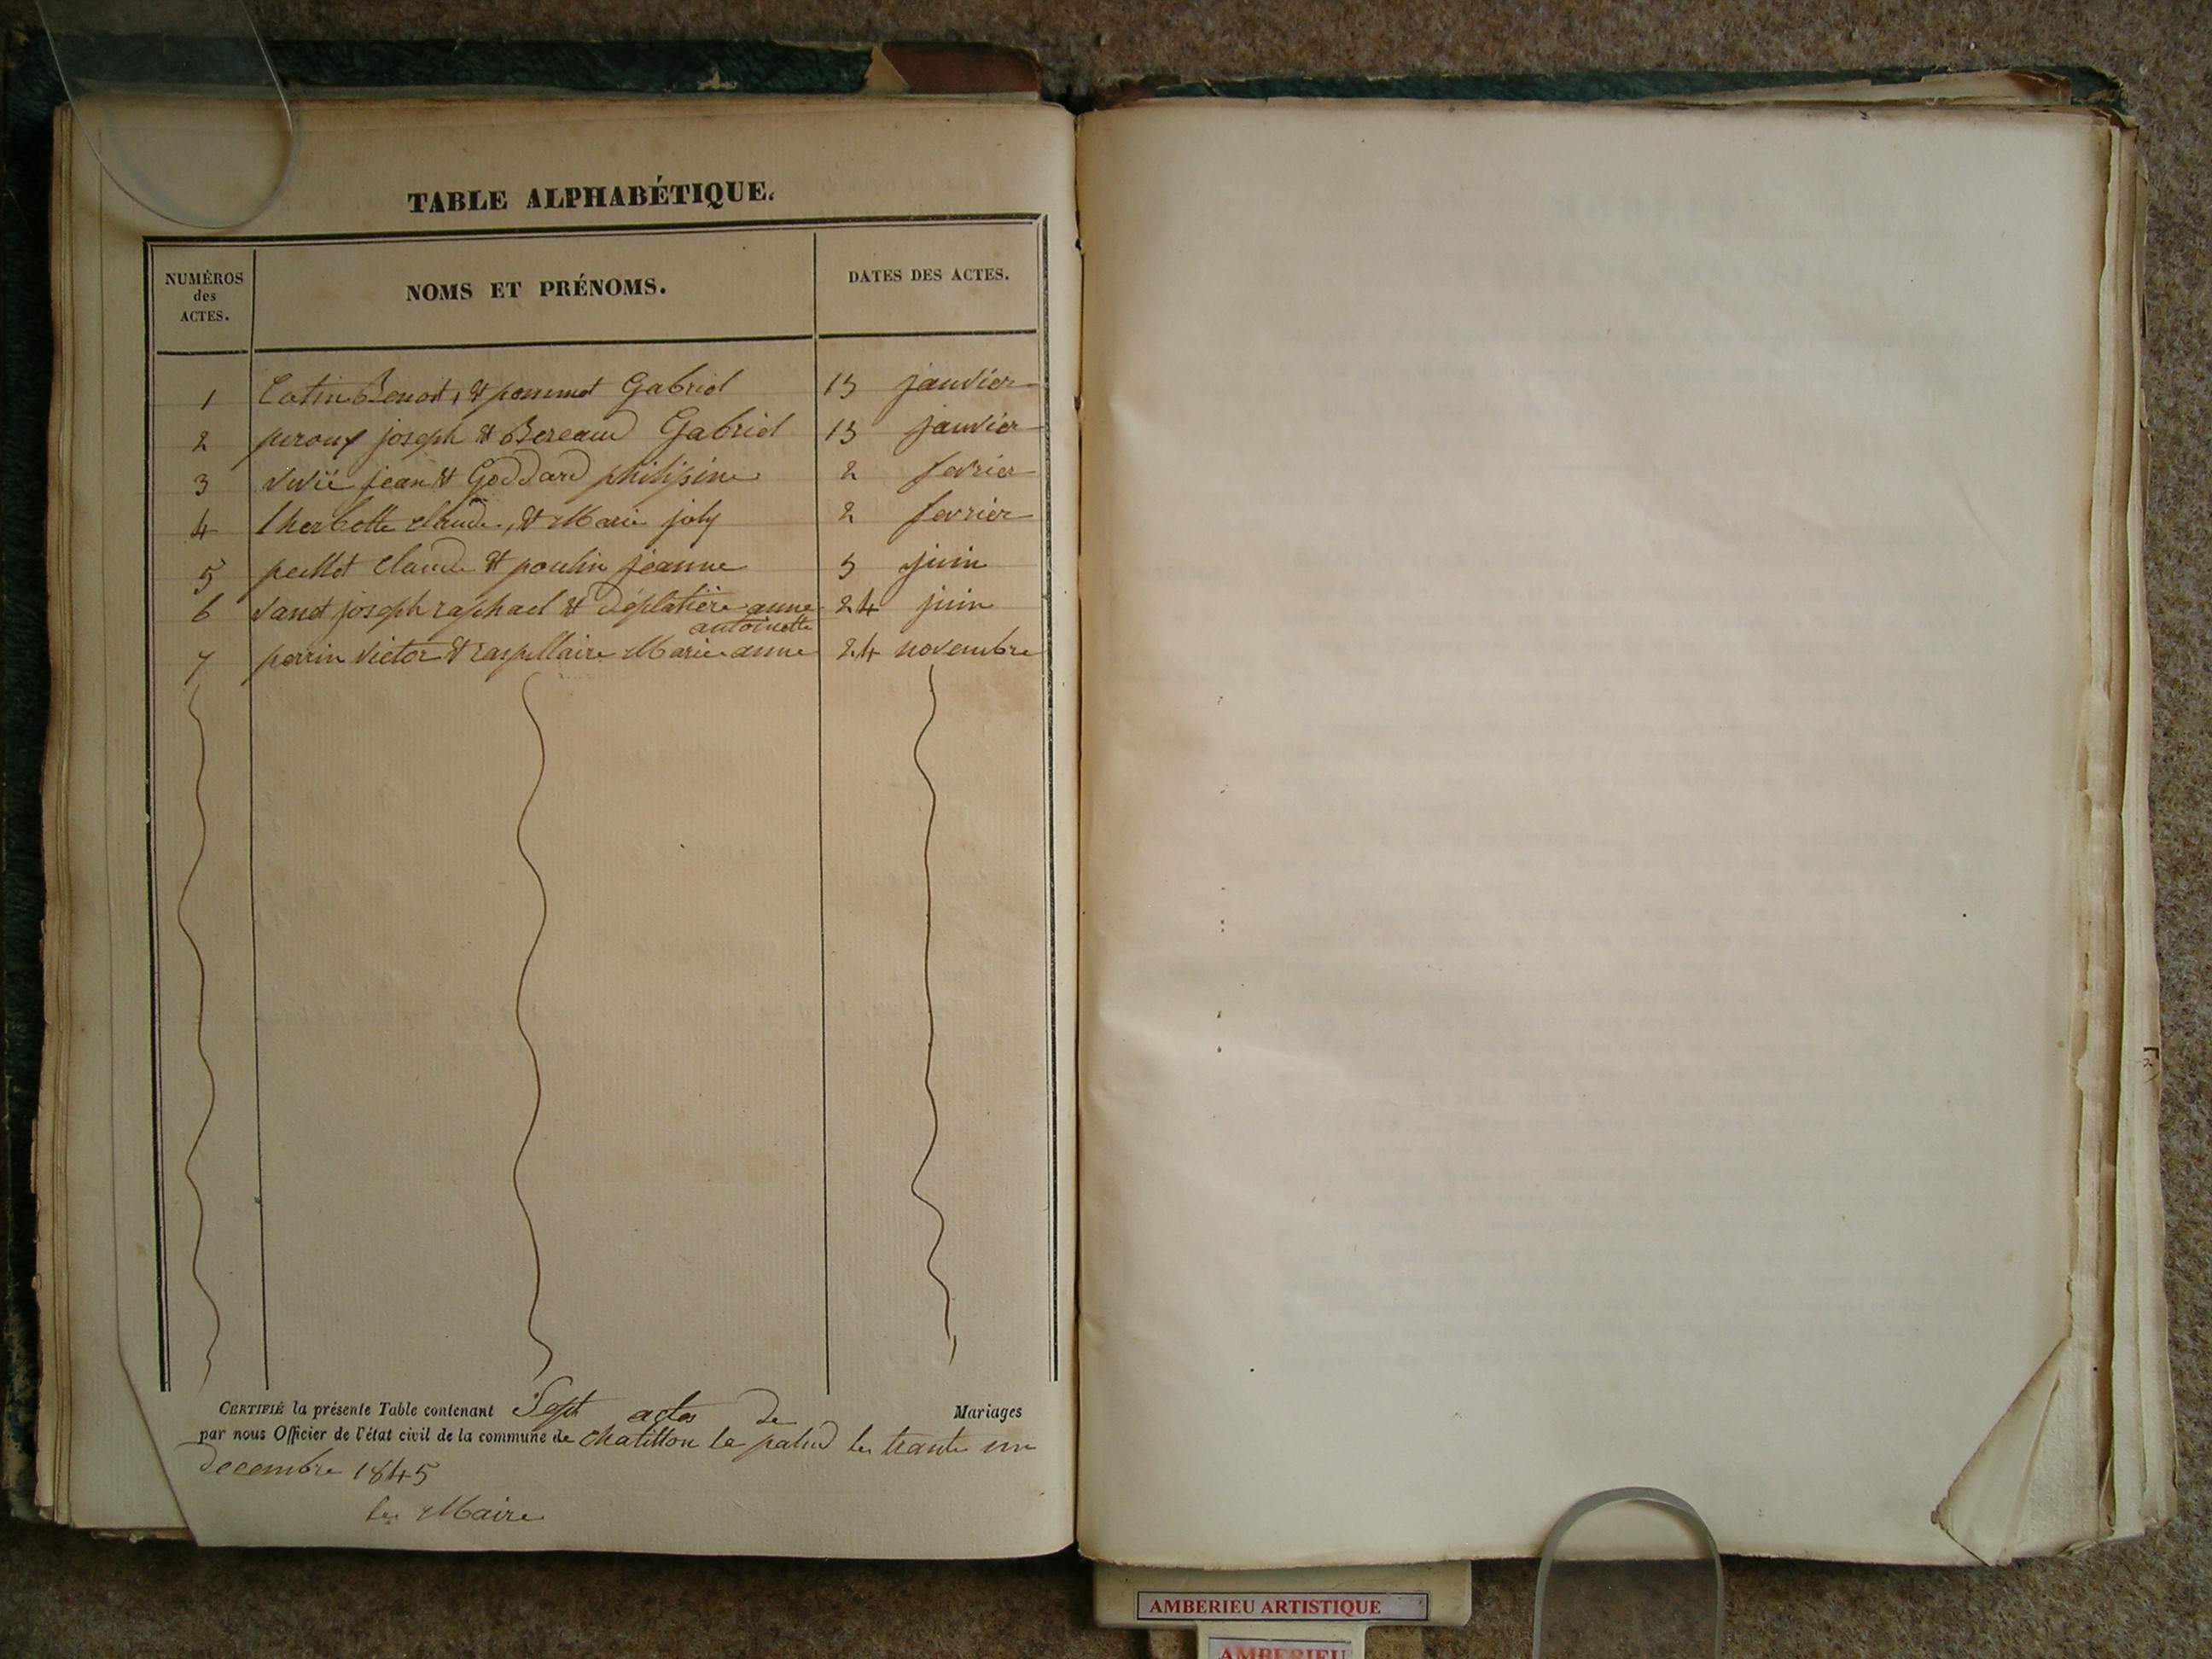 TABLE ALPHABÉTIQUE.
NUMÉROS
des
ACTES.
NOMS ET PRÉNOMS.
DATES DES ACTES.
1 Cotin Benoit, & pommet Gabriel 13 janvier
2 peroux joseph & Bereaud Gabriel 13 janvier
3 jean & Goddard philipine 2 fevrier
4 lherbotte claude, & Marie joly 2 fevrier
5 peillot Claude & poulin jeanne 5 juin
6 Vanet joseph raphael & Déplatière anne 24 juin
antoinette
7 perrin Victor & raspillaire Marie anne 24 novembre
CERTIFIÉ la présente Table contenant Sept actes de Mariages
par nous Officier de l'état civil de la commune de chatillon la palud le trante un
decembre 1845
le Maire
AMBERIEU ARTISTIQUE
AMBERIEU